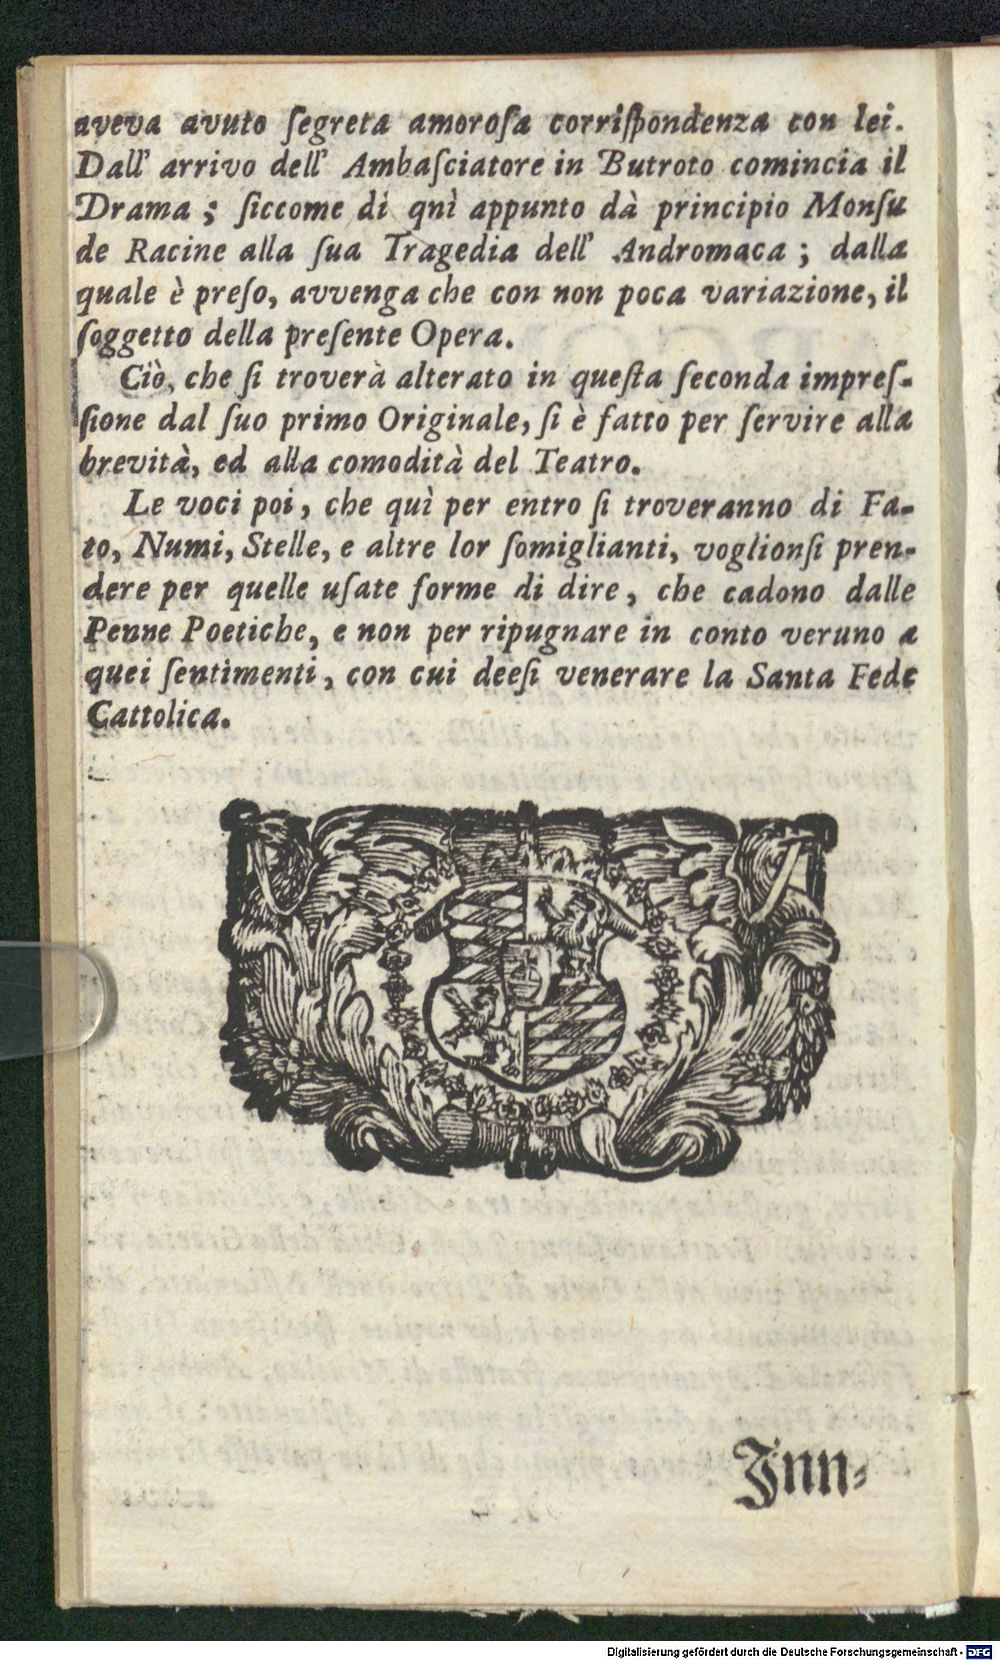 aveva avuto ſegreta amoroſa corriſpondenza con lei.
Dall' arrivo dell' Ambaſciatore in Butroto comincia il
Drama; ſiccome di qnì appunto dà principio Monſu
de Racine alla ſua Tragedia dell' Andromaca; dalla
quale è preſo, avvenga che con non poca variazione, il
ſoggetto della preſente Opera.
Ciò, che ſi troverà alterato in queſta ſeconda impreſ-
ſione dal ſuo primo Originale, ſi è fatto per ſervire alla
brevità, ed alla comodità del Teatro.
Le voci poi, che quì per entro ſi troveranno di Fa-
to, Numi, Stelle, e altre lor ſomiglianti, voglionſi pren-
dere per quelle uſate forme di dire, che cadono dalle
Penne Poetiche, e non per ripugnare in conto veruno a
quei ſentimenti, con cui deeſi venerare la Santa Fede
Cattolica.
Jnn-
Digitalisierung gefördert durch die Deutsche Forschungsgemeinschaft - DFG